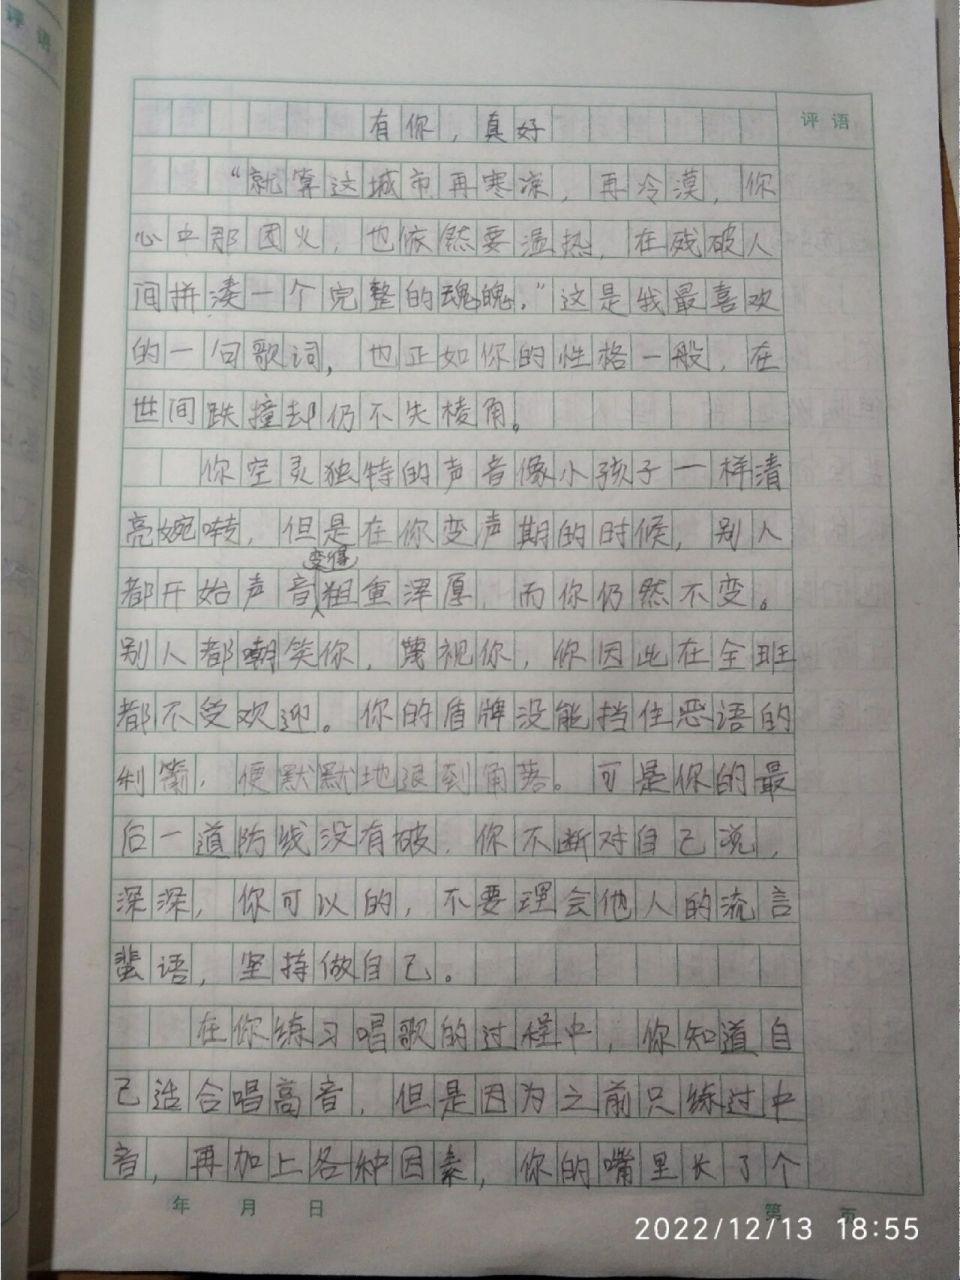 评语
有你，真好
评语
“就算这城市再寒凉，再冷漠，你
心中那团火，也依然要温热，在残破人
间拼凑一个完整的魂魄。”这是我最喜欢
的一句歌词，也正如你的性格一般，在
世间跌撞却仍不失棱角。
你空灵独特的声音像小孩子一样清
亮婉啭，但是在你变声期的时候，别人
变得
都开始声音粗重浑厚，而你仍然不变。
别人都嘲笑你，蔑视你，你因此在全班
都不受欢迎。你的盾牌没能挡住恶语的
利箭，便默默地退到角落。可是你的最
后一道防线没有破，你不断对自己说，
深深，你可以的，不要理会他人的流言
蜚语，坚持做自己。
在你练习唱歌的过程中，你知道自
己适合唱高音，但是因为之前只练过中
音，再加上各种因素，你的嘴里长了个
年 月 日
第 页
2022/12/13 18:55